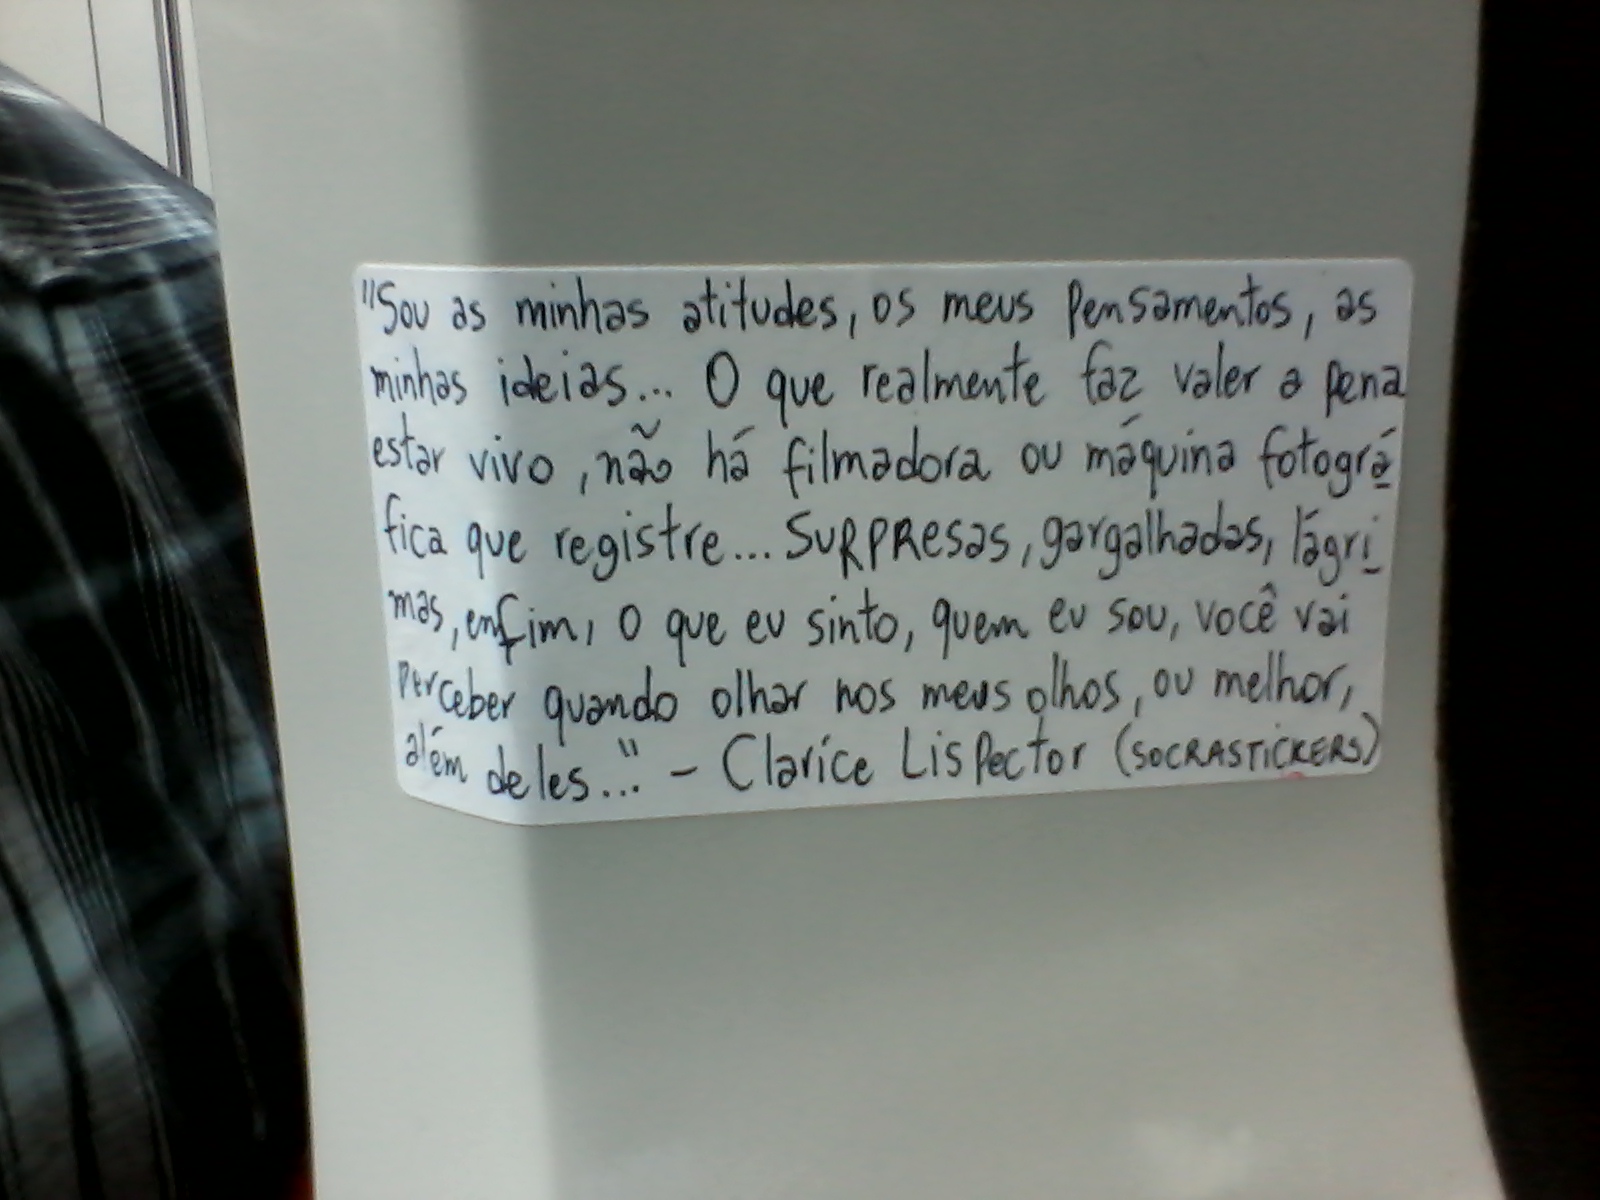 "Sou as minhas atitudes, os meus pensamentos, as
minhas ideias... O que realmente faz valer a pena
estar vivo, não há filmadora ou máquina fotográ
fica que registre... SURPResas, gargalhadas, lágri
mas, enfim, o que eu sinto, quem eu sou, você vai
perceber quando olhar nos meus olhos, ou melhor,
além deles..." - Clarice Lispector (SOCRASTICKERS)